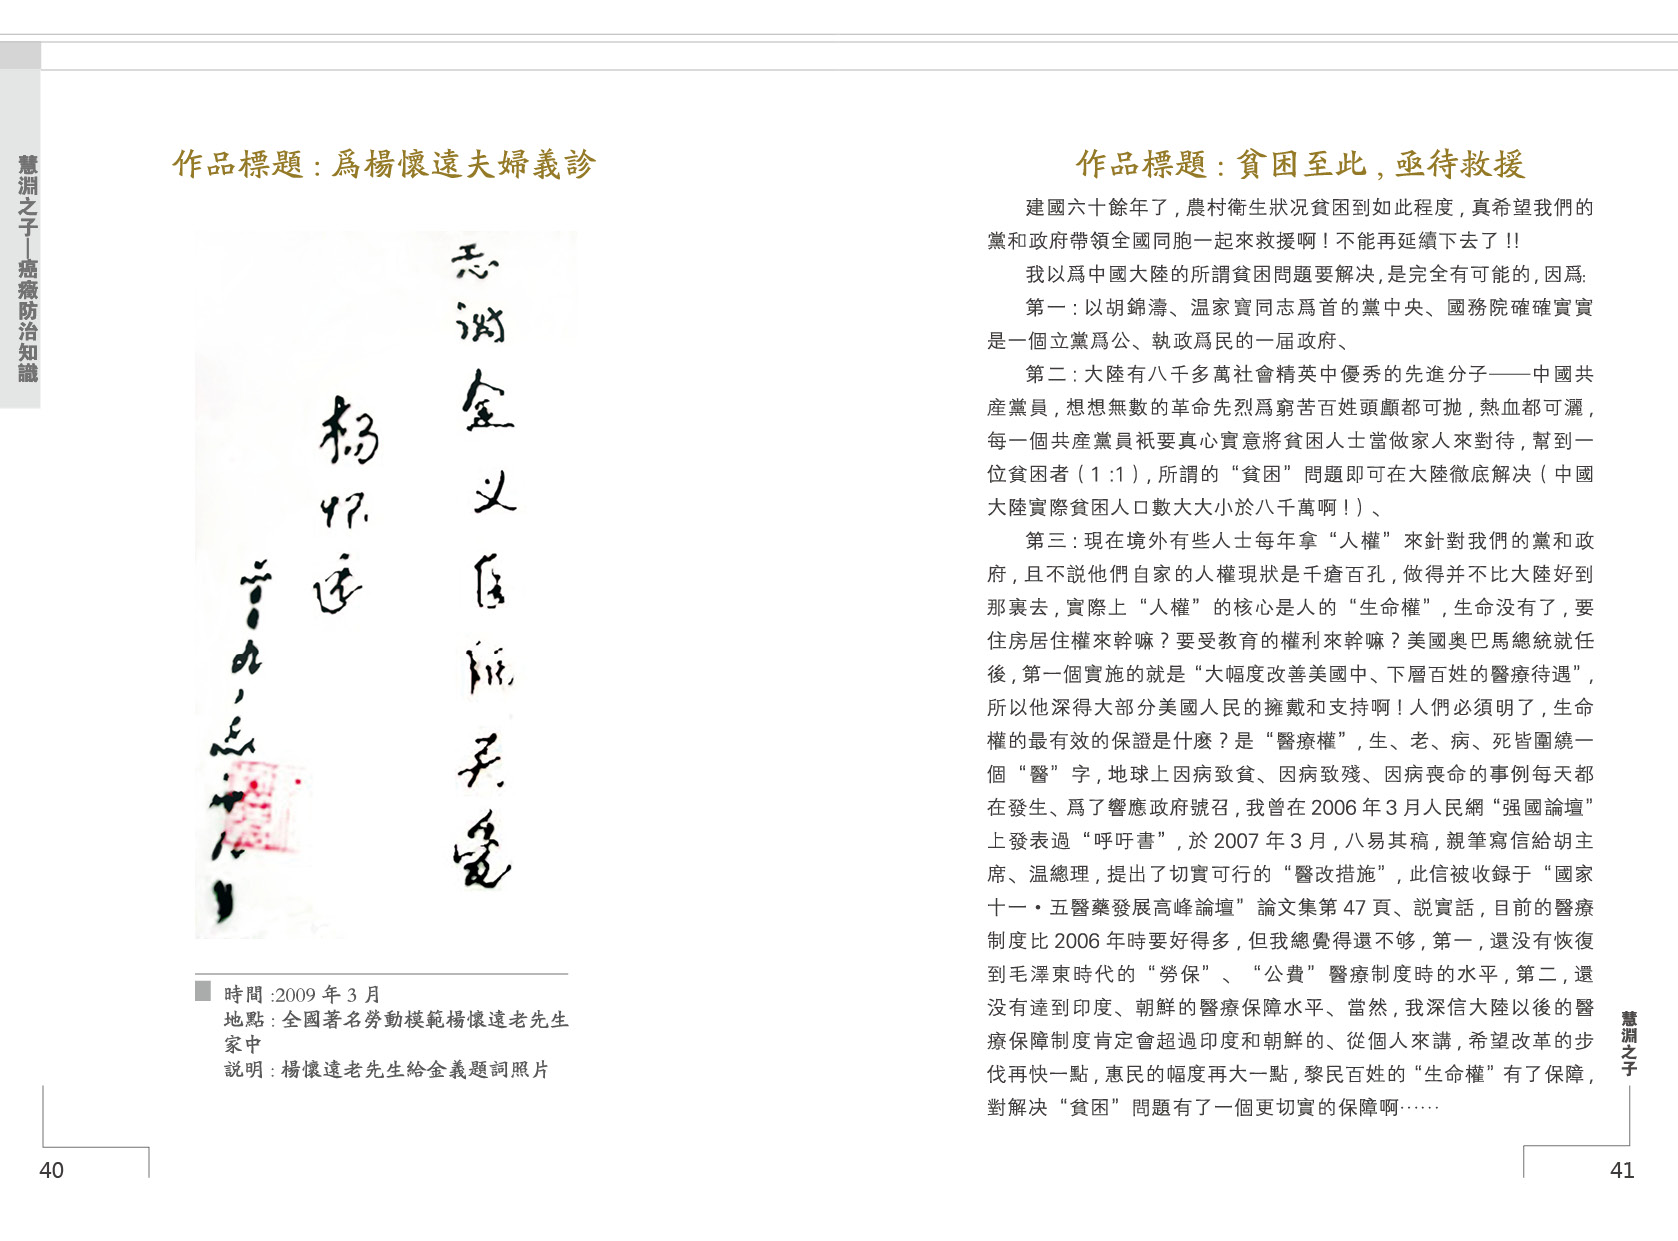 慧淵之子—癌癥防治知識
作品標題：爲楊懷遠夫婦義診
金义医
楊怀远
時間 :2009 年 3 月
地點：全國著名勞動模範楊懷遠老先生
家中
説明：楊懷遠老先生給金義題詞照片
40
作品標題：貧困至此，亟待救援
建國六十餘年了，農村衛生狀况貧困到如此程度，真希望我們的
黨和政府帶領全國同胞一起來救援啊！不能再延續下去了 !!
我以爲中國大陸的所謂貧困問題要解决，是完全有可能的，因爲:
第一：以胡錦濤、温家寶同志爲首的黨中央、國務院確確實實
是一個立黨爲公、執政爲民的一届政府、
第二：大陸有八千多萬社會精英中優秀的先進分子——中國共
産黨員，想想無數的革命先烈爲窮苦百姓頭顱都可抛，熱血都可灑，
每一個共産黨員衹要真心實意將貧困人士當做家人來對待，幫到一
位貧困者（1 :1），所謂的“貧困”問題即可在大陸徹底解决（中國
大陸實際貧困人口數大大小於八千萬啊！）、
第三：現在境外有些人士每年拿“人權”來針對我們的黨和政
府，且不説他們自家的人權現狀是千瘡百孔，做得并不比大陸好到
那裏去，實際上“人權”的核心是人的“生命權”，生命没有了，要
住房居住權來幹嘛？要受教育的權利來幹嘛？美國奥巴馬總統就任
後，第一個實施的就是“大幅度改善美國中、下層百姓的醫療待遇”，
所以他深得大部分美國人民的擁戴和支持啊！人們必須明了，生命
權的最有效的保證是什麽？是“醫療權”，生、老、病、死皆圍繞一
個“醫”字，地球上因病致貧、因病致殘、因病喪命的事例每天都
在發生、爲了響應政府號召，我曾在 2006 年 3 月人民網“强國論壇”
上發表過“呼吁書”，於 2007 年 3 月，八易其稿，親筆寫信給胡主
席、温總理，提出了切實可行的“醫改措施”，此信被收録于“國家
十一·五醫藥發展高峰論壇”論文集第 47 頁、説實話，目前的醫療
制度比 2006 年時要好得多，但我總覺得還不够，第一，還没有恢復
到毛澤東時代的“勞保”、“公費”醫療制度時的水平，第二，還
没有達到印度、朝鮮的醫療保障水平、當然，我深信大陸以後的醫
療保障制度肯定會超過印度和朝鮮的、從個人來講，希望改革的步
伐再快一點，惠民的幅度再大一點，黎民百姓的“生命權”有了保障，
對解决“貧困”問題有了一個更切實的保障啊……
慧淵之子
41